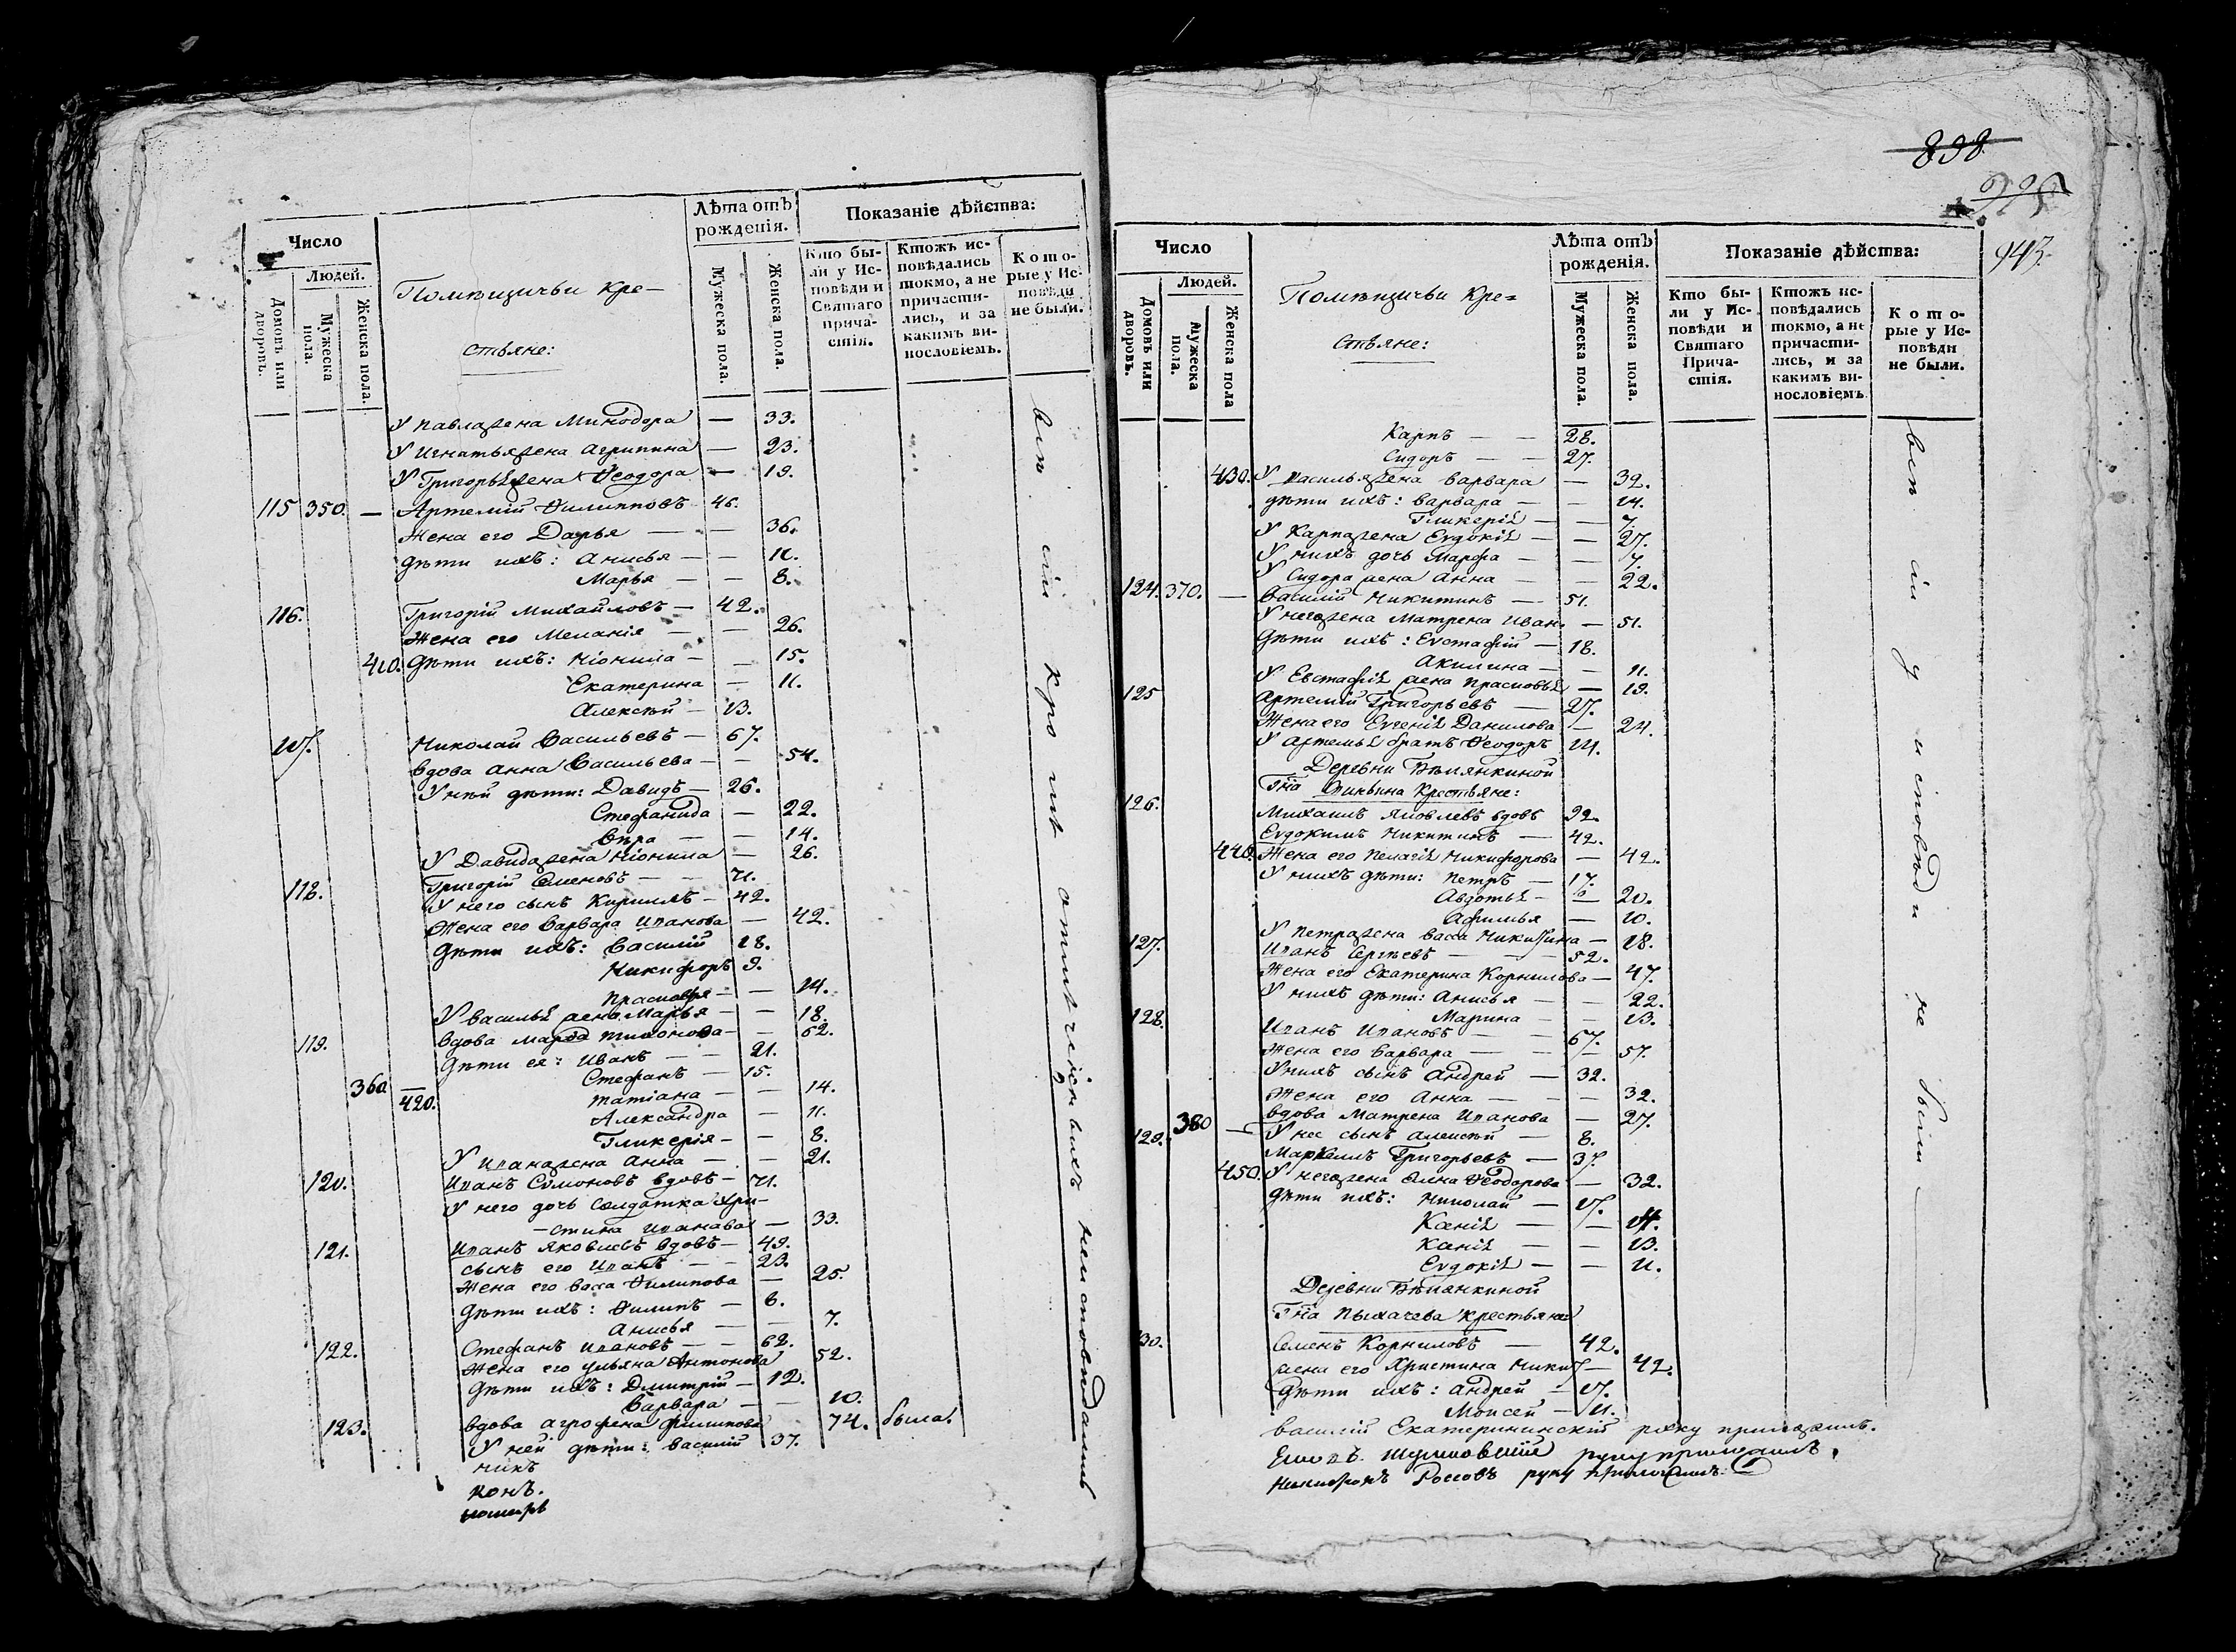 Число
Людей.
Домовъ или дворовъ.
Мужеска пола.
Женска пола.
Помѣщичьи Кре-
стьяне:
Лѣта отъ рожденія.
Мужеска пола.
Женска пола.
Показаніе дѣйства:
Кто бы-
ли у Ис-
повѣди и
Святаго
прича-
стія.
Ктожъ ис-
повѣдались
токмо, а не
причасти-
лись, и за
какимъ ви-
нословіемъ.
Кото-
рые у Ис-
повѣди
не были.
У Павла жена Минодора — 33.
У Игнатья жена Агрипина — 23.
У Григорья жена Ѳеодора — 19.
115 350. — Артемій Филипповъ 46.
Жена его Дарья — — 36.
Дѣти ихъ: Анисья — — 11.
Марья — — 8.
116. Григорій Михайловъ — 42.
Жена его Меланія — — 26.
410. Дѣти ихъ: Неонила — — 15.
Екатерина — 11.
Алексѣй — 13.
117. Николай Васильевъ — 67.
Вдова Анна Васильева — — 54.
У ней дѣти: Давидъ — 26.
Стефанида — 22.
Вѣра — — 14.
У Давида жена Неонила — 26.
118. Григорій Семеновъ — — 71.
У него сынъ Кириллъ — 42.
Жена его Варвара Иванова — 42.
Дѣти ихъ: Василій 18.
Никифоръ 9.
Прасковья — — 14.
У Василья жена Марья — — 18.
119. Вдова Марѳа Тихонова — — 62.
Дѣти ея: Иванъ — — 21.
Стефанъ — 15.
360 — 420. Татіана — — 14.
Александра — 11.
Гликерія — — 8.
У Ивана жена Анна — — 21.
120. Иванъ Симоновъ вдовъ — 71.
У него дочь Солдатка Хри-
-стина Иванова — 33.
121. Иванъ Яковлевъ вдовъ — 49.
сынъ его Иванъ — — 23.
Жена его Васса Филипова — 25.
Дѣти ихъ: Филипъ — 6.
Анисья — — 7.
122. Стефанъ Ивановъ — — 62.
Жена его Ульяна Антонова 52.
Дѣти ихъ: Дмитрій — 12.
Варвара — — 10.
123. Вдова Агрофена Филипова 74. была
У ней дѣти: Василій 37.
всѣ сіи кромѣ отмѣченныхъ неисповѣдались
898
943.
Число
Людей.
Домовъ или дворовъ.
Мужеска пола.
Женска пола
Помѣщичьи Кре=
стьяне:
Лѣта отъ рожденія.
Мужеска пола.
Женска пола.
Показаніе дѣйства:
Кто бы-
ли у Ис-
повѣди и
Святаго
Прича-
стія.
Ктожъ ис-
повѣдались
токмо, а не
причасти-
лись, и за
какимъ ви-
нословіемъ
Кото-
рые у Ис-
повѣди
не были.
Карпъ — — 28.
Сидоръ — — 27.
430. У Василья жена Варвара — 32.
Дѣти ихъ: Варвара — — 14.
Гликерія — — 7.
У Карпа жена Евдокія — — 27.
У нихъ дочь Марфа — — 7.
У Сидора жена Анна — — 22.
124. 370. — Василій Никитинъ — 51.
У него жена Матрена Иван. — 51.
Дѣти ихъ: Евстафій — 18.
Акилина — — 11.
У Евстафія жена Прасковья — 19.
125 Артемій Григорьевъ — 27.
Жена его Евгенія Данилова — 24.
У Артемья братъ Ѳеодоръ 14.
Деревни Бѣлянкиной
Крестьяне:
126. Михаилъ Яковлевъ вдовъ 32.
Евдокимъ Никитинъ — 42.
440. Жена его Пелагія Никифорова — 42.
У нихъ дѣти: Петръ — 17.
Авдотья — — 20.
Афимья — 10.
У Петра жена Васса Никитина — 18.
127. Иванъ Сергѣевъ — — 52.
Жена его Екатерина Корнилова — 47.
У нихъ дѣти: Анисья — — 22.
Марина — — 13.
128. Иванъ Ивановъ — — 67.
Жена его Варвара — — 57.
У нихъ сынъ Андрей — 32.
Жена его Анна — — — 32.
Вдова Матрена Иванова — 27.
380 — У нее сынъ Алексѣй — 8.
129. Маркеллъ Григорьевъ — 37.
450. У него жена Анна Ѳеодорова — 32.
Дѣти ихъ: Николай — 17.
Ксенія — — 14.
Ксенія — — 13.
Евдокія — — 11.
Деревни Бѣлянкиной
Гна Пыхачева Крестьяне
130. Семенъ Корниловъ — 42.
жена его Христина Никит — 42.
Дѣти ихъ: Андрей — 17.
Моисей — 11.
всѣ сіи у исповѣди не были
Василій Екатерининскій руку приложилъ.
руку приложилъ.
Никифоръ Россовъ руку приложилъ.